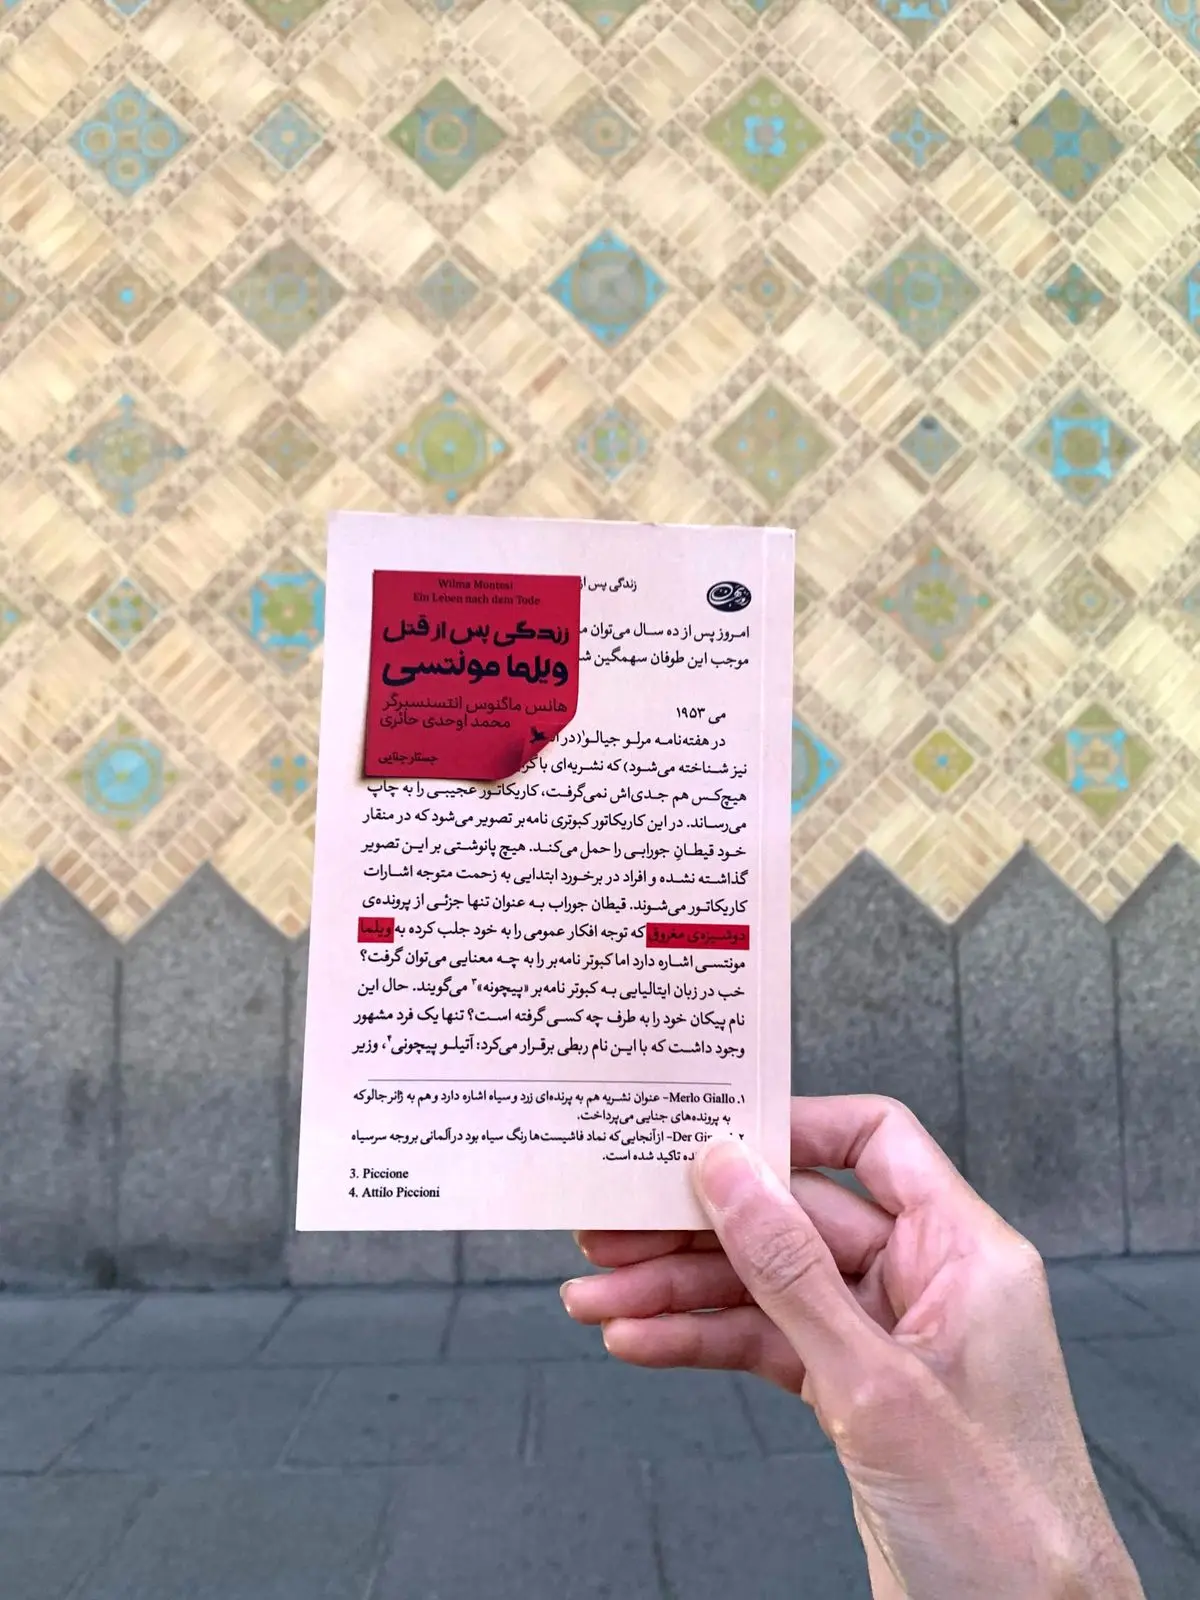 Wilma Montesi
Ein Leben nach dem Tode
زندگی پس از قتل
ویلما مونتسی
هانس ماگنوس انتسنسبرگر
محمد اوحدی حائری
جستار جنایی
زندگی پس از
امروز پس از ده سال می‌توان
موجب این طوفان سهمگین
می ۱۹۵۳
در هفته‌نامه مرلو جیالو۱ (در
نیز شناخته می‌شود) که نشریه‌ای با
هیچ‌کس هم جدی‌اش نمی‌گرفت، کاریکاتور عجیبی را به چاپ
می‌رساند. در این کاریکاتور کبوتری نامه‌بر تصویر می‌شود که در منقار
خود قیطانِ جورابی را حمل می‌کند. هیچ پانوشتی بر این تصویر
گذاشته نشده و افراد در برخورد ابتدایی به زحمت متوجه اشارات
کاریکاتور می‌شوند. قیطان جوراب به عنوان تنها جزئی از پرونده‌ی
دوشیزه‌ی مغروق که توجه افکار عمومی را به خود جلب کرده به ویلما
مونتسی اشاره دارد اما کبوتر نامه‌بر را به چه معنایی می‌توان گرفت؟
خب در زبان ایتالیایی به کبوتر نامه‌بر «پیچونه»۳ می‌گویند. حال این
نام پیکان خود را به طرف چه کسی گرفته است؟ تنها یک فرد مشهور
وجود داشت که با این نام ربطی برقرار می‌کرد: آتیلو پیچونی۴، وزیر
۱. Merlo Giallo- عنوان نشریه هم به پرنده‌ای زرد و سیاه اشاره دارد و هم به ژانر جالو که
به پرونده‌های جنایی می‌پرداخت.
۲. Der- از آنجایی که نماد فاشیست‌ها رنگ سیاه بود در آلمانی بر وجه سرسیاه
تاکید شده است.
3. Piccione
4. Attilo Piccioni